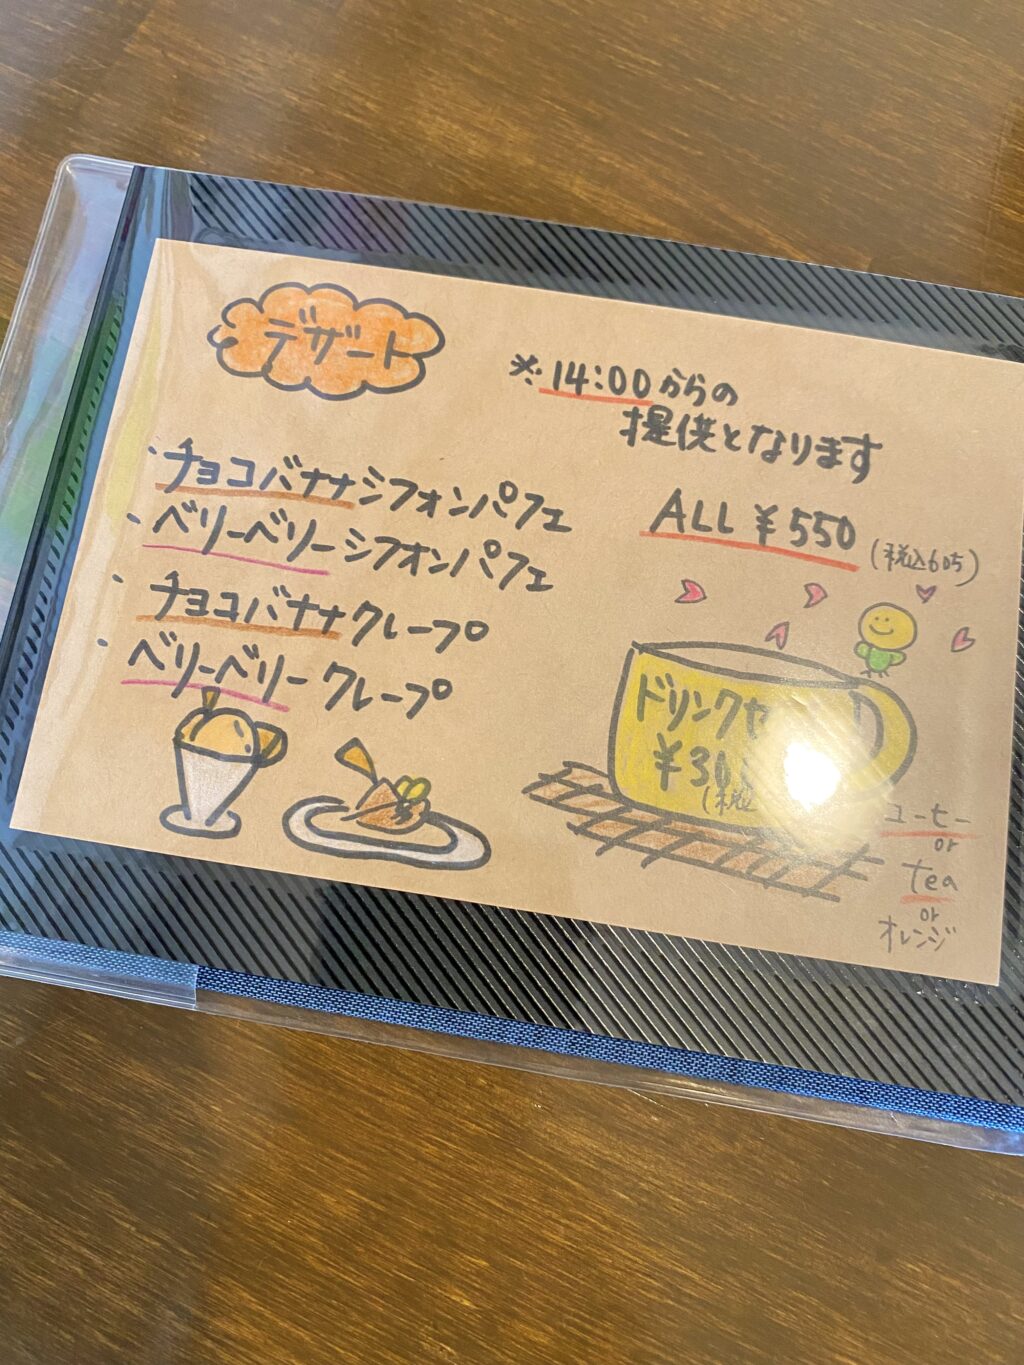 デザート
※14:00からの
提供となります
・チョコバナナシフォンパフェ
・ベリーベリーシフォンパフェ
・チョコバナナクレープ
・ベリーベリークレープ
ALL ¥550 (税込605)
ドリンクセ
¥30
(税込
コーヒー
or
tea
or
オレンジ